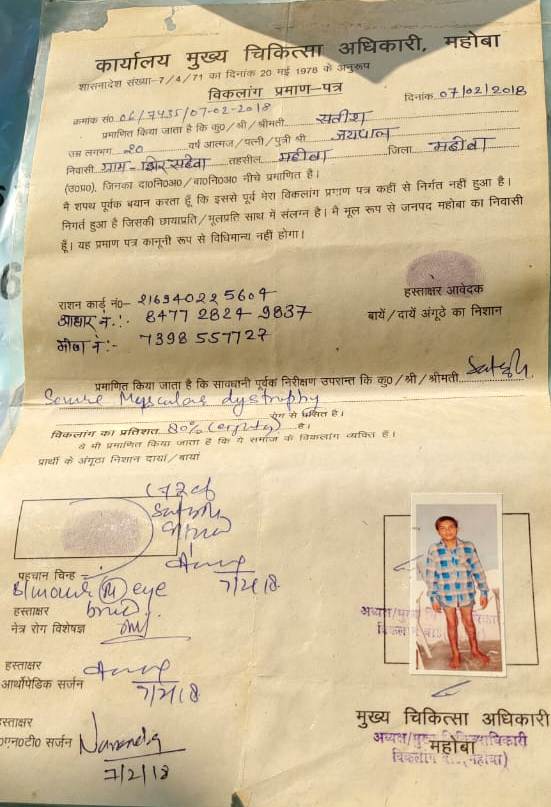 कार्यालय मुख्य चिकित्सा अधिकारी, महोबा
शासनादेश संख्या-7/4/71 का दिनांक 20 मई 1978 के अनुरूप
विकलांग प्रमाण-पत्र
क्रमांक सं० 06/7435/07-02-2018 दिनांक 07/02/2018
प्रमाणित किया जाता है कि कु०/श्री/श्रीमती सतीश
उम्र लगभग 20 वर्ष आत्मज/पत्नी/पुत्री श्री जयपाल
निवासी ग्राम - तहसील महोबा जिला महोबा
(उ०प्र०), जिनका दा०नि०अ०/बा०नि०अ० नीचे प्रमाणित है।
मै शपथ पूर्वक बयान करता हूँ कि इससे पूर्व मेरा विकलांग प्रमाण पत्र कहीं से निर्गत नहीं हुआ है।
निगर्त हुआ है जिसकी छायाप्रति/मूलप्रति साथ में संलग्न है। मै मूल रूप से जनपद महोबा का निवासी
हूँ। यह प्रमाण पत्र कानूनी रूप से विधिमान्य नहीं होगा।
हस्ताक्षर आवेदक
राशन कार्ड नं०- 216340225604
बायें/दायें अंगूठे का निशान
आधार नं.:- 8477 2824 9837
मोबा नं:- 7398557727
प्रमाणित किया जाता है कि सावधानी पूर्वक निरीक्षण उपरान्त कि कु०/श्री/श्रीमती Satish
Severe Muscular dystrophy रोग से ग्रसित है।
विकलांग का प्रतिशत 80% (eighty) है।
ये भी प्रमाणित किया जाता है कि ये समाज के विकलांग व्यक्ति है।
प्रार्थी के अंगूठा निशान दायां/बायां
7/2/18
पहचान चिन्ह
eye
हस्ताक्षर
नेत्र रोग विशेषज्ञ
हस्ताक्षर
आर्थोपेडिक सर्जन
7/2/18
हस्ताक्षर
सर्जन Narendra
7/2/18
मुख्य चिकित्सा अधिकारी
महोबा